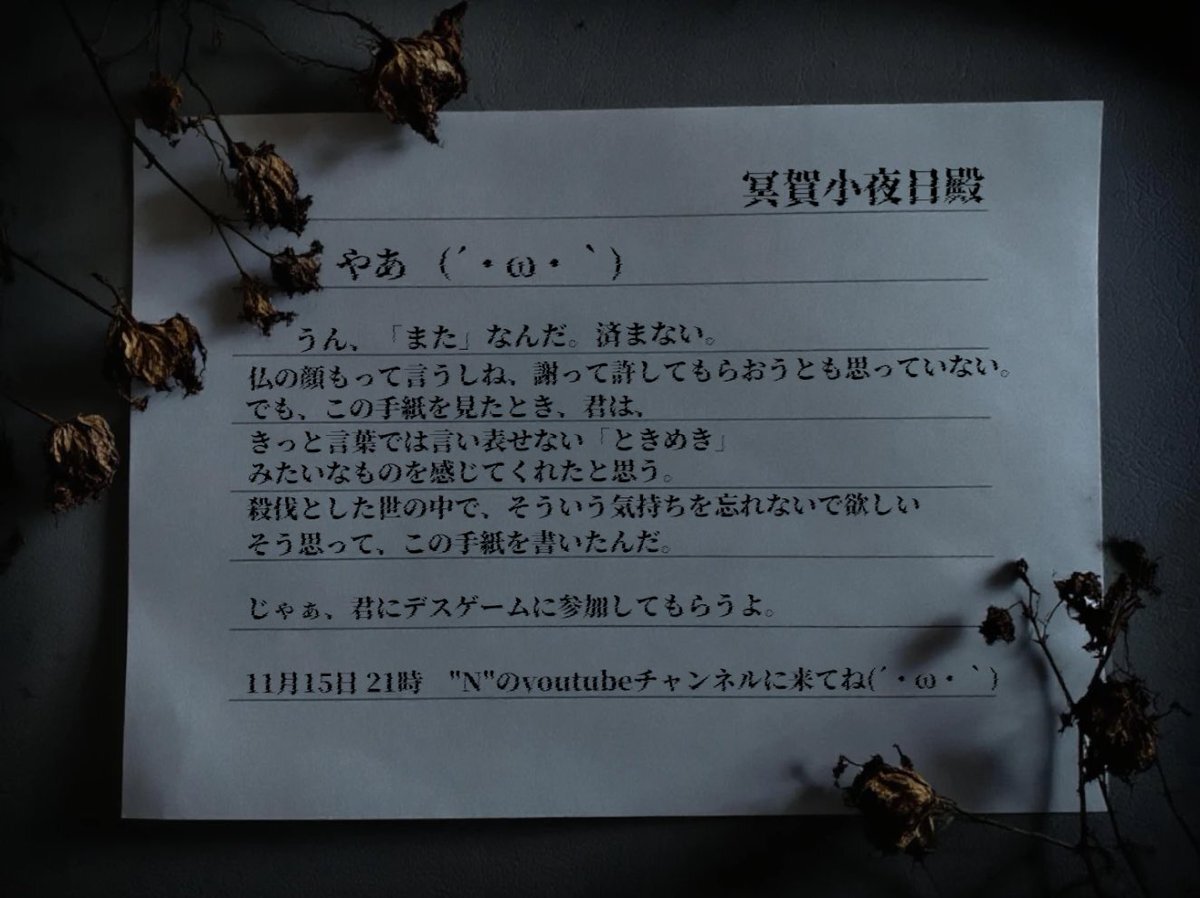 冥賀小夜日殿
やあ (´・ω・｀)
うん、「また」なんだ。済まない。
仏の顔もって言うしね、謝って許してもらおうとも思っていない。
でも、この手紙を見たとき、君は、
きっと言葉では言い表せない「ときめき」
みたいなものを感じてくれたと思う。
殺伐とした世の中で、そういう気持ちを忘れないで欲しい
そう思って、この手紙を書いたんだ。
じゃぁ、君にデスゲームに参加してもらうよ。
11月15日 21時 "N"のyoutubeチャンネルに来てね(´・ω・｀)